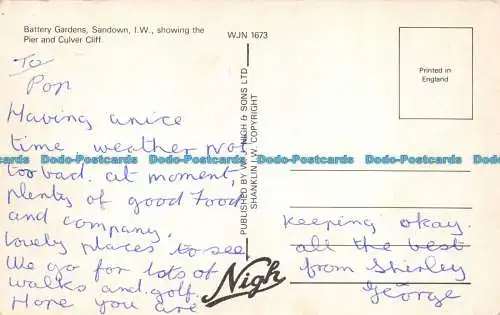 Battery Gardens, Sandown, I.W., showing the
Pier and Culver Cliff.
WJN 1673
Printed in
England
To
Pop
Having a nice
time weather not
too bad. at moment,
plenty of good Food
and company.
lovely places to see
We go for lots of
walks and golf.
Hope you are
keeping okay.
all the best
from Shirley
George
PUBLISHED BY W. J. NIGH & SONS LTD
SHANKLIN I.W. COPYRIGHT
Nigh
Dodo-Postcards Dodo-Postcards Dodo-Postcards Dodo-Postcards Dodo-Postcards